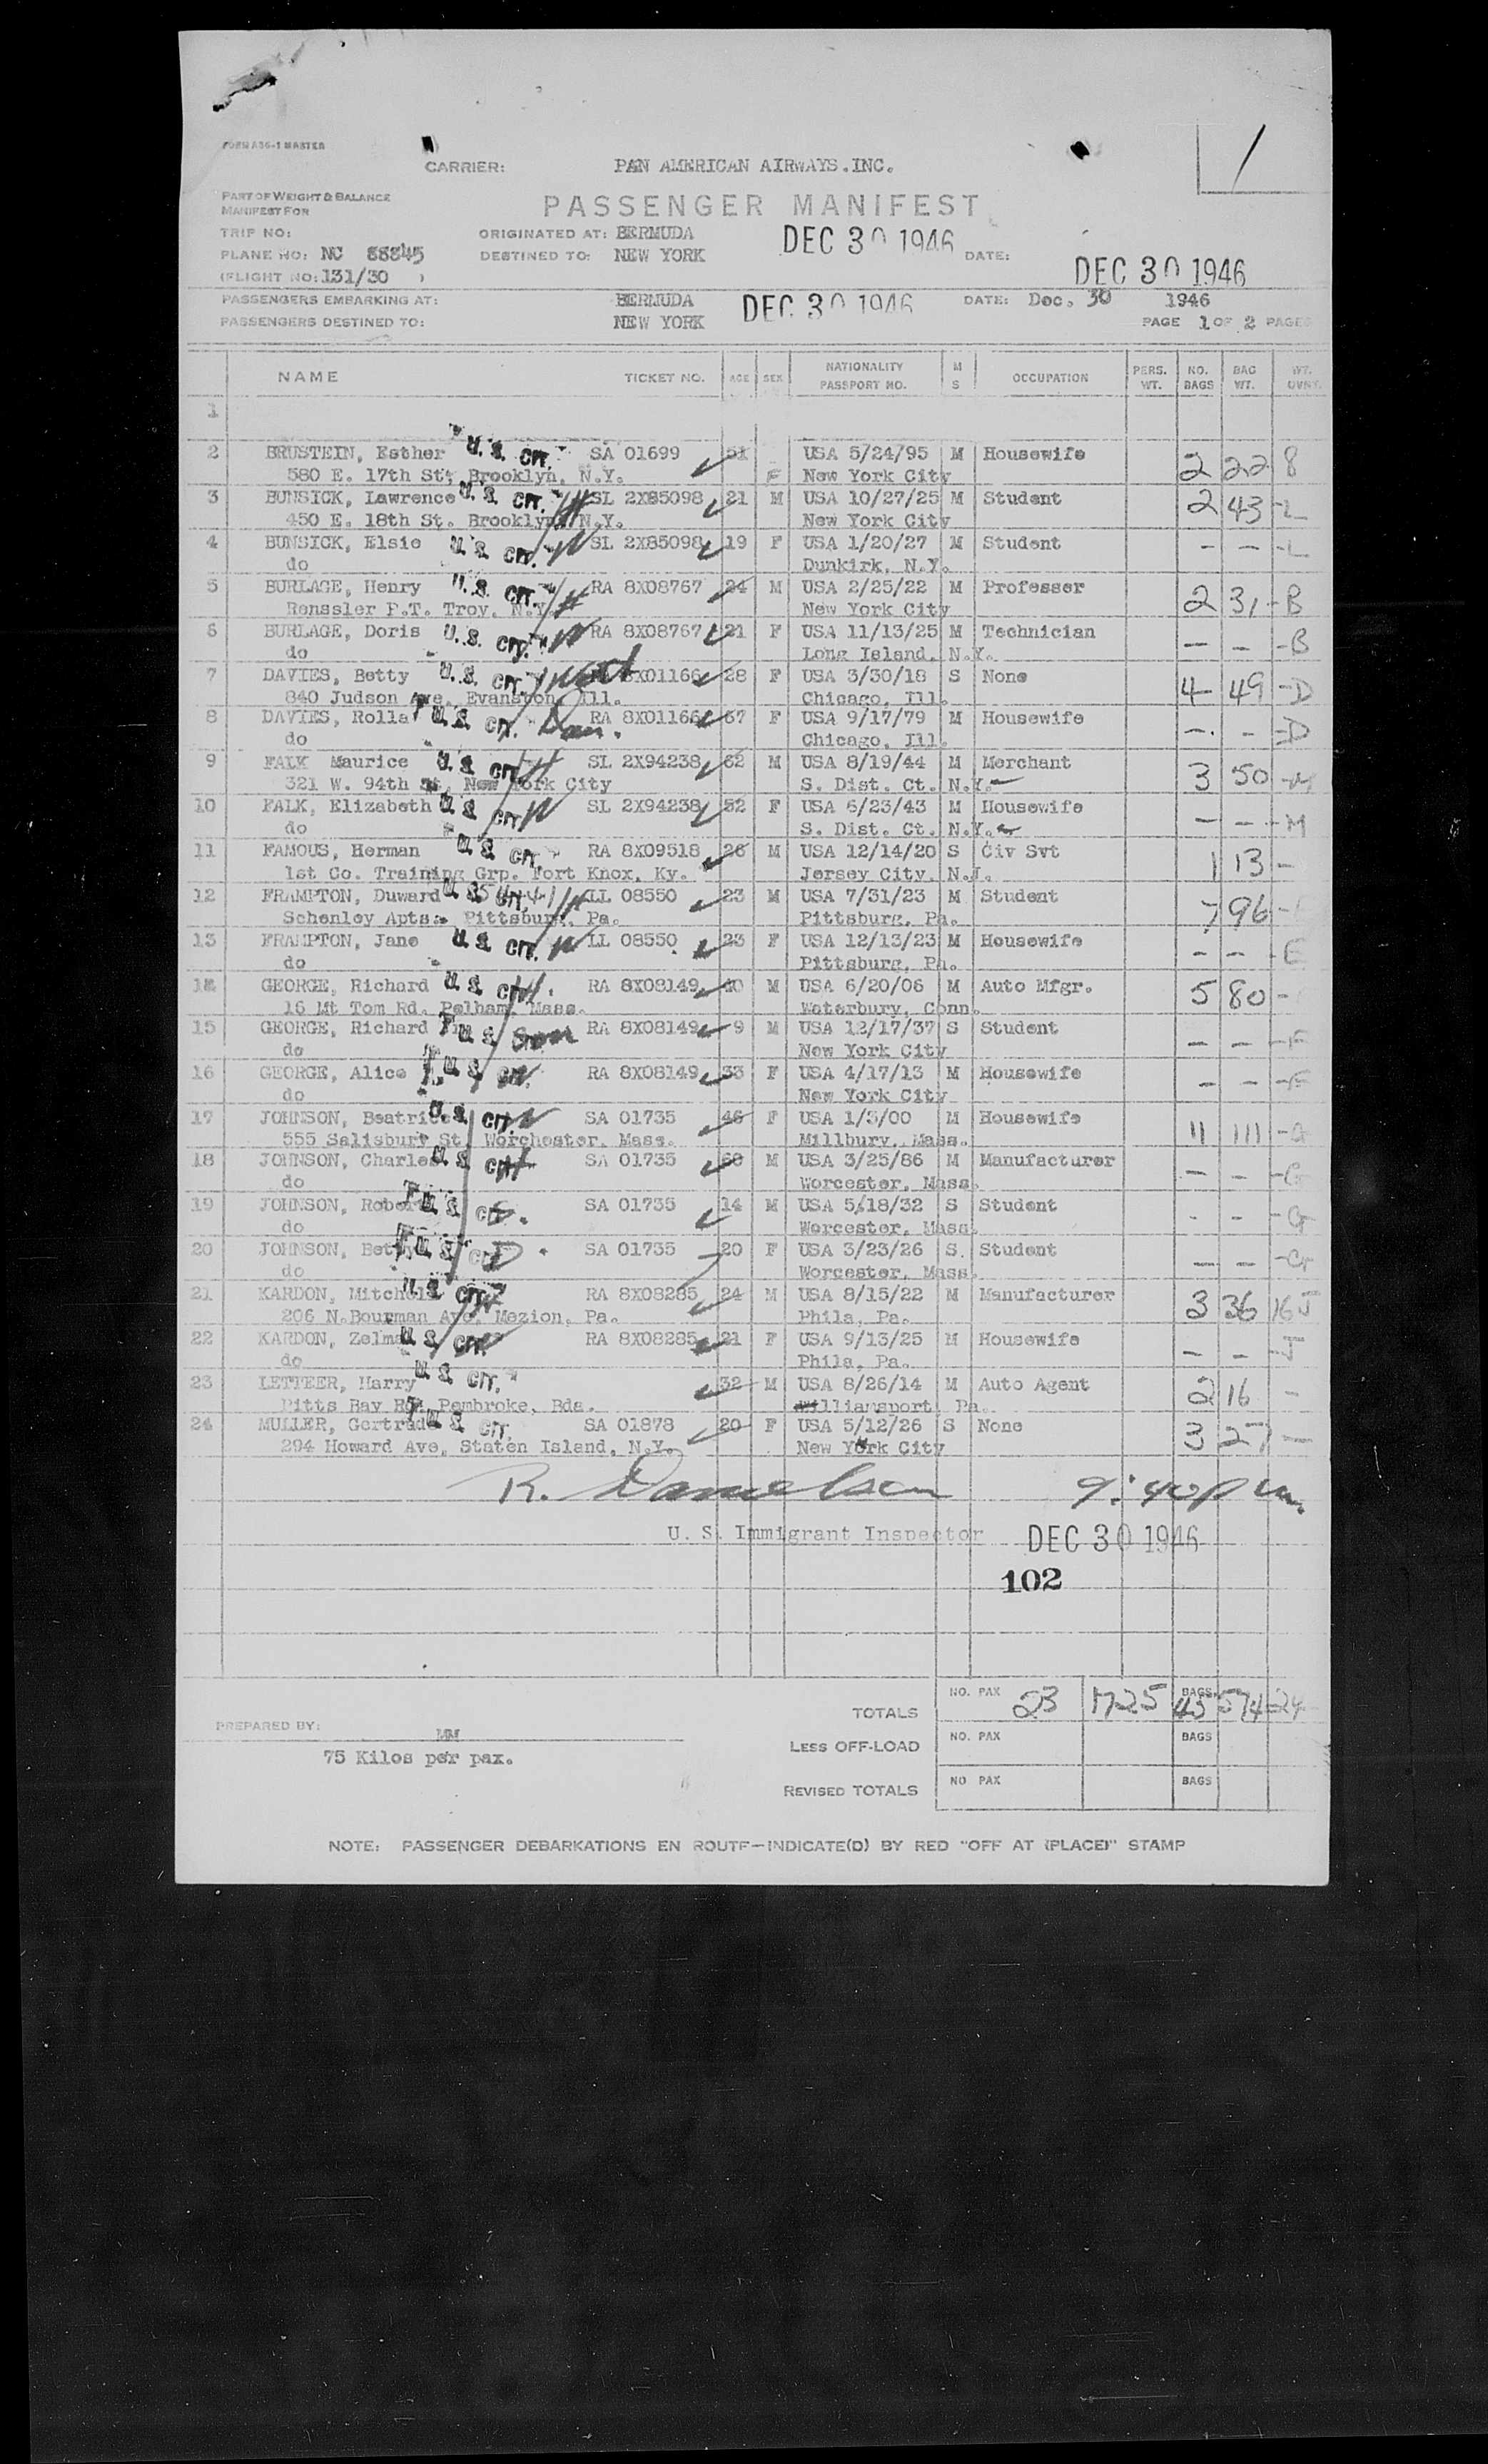 FORM A36-1 MASTER
CARRIER: PAN AMERICAN AIRWAYS.INC.
PART OF WEIGHT & BALANCE
MANIFEST FOR
PASSENGER MANIFEST
TRIP NO: ORIGINATED AT: BERMUDA DEC 30 1946
PLANE NO: NC 88845 DESTINED TO: NEW YORK DATE: DEC 30 1946
(FLIGHT NO: 131/30 )
PASSENGERS EMBARKING AT: BERMUDA DEC 30 1946 DATE: Dec. 30 1946
PASSENGERS DESTINED TO: NEW YORK PAGE 1 OF 2 PAGES
NAME TICKET NO. AGE SEX NATIONALITY PASSPORT NO. M S OCCUPATION PERS. WT. NO. BAGS BAG WT. WT.
1
2 BRUSTEIN, Esther U.S. CIT. SA 01699 51 F USA 5/24/95 M Housewife 2 22
580 E. 17th St, Brooklyn, N.Y. New York City
3 BUNSICK, Lawrence U.S. CIT. H SL 2X85098 21 M USA 10/27/25 M Student 2 43 -L
450 E. 18th St. Brooklyn N.Y. New York City
4 BUNSICK, Elsie U.S. CIT. W SL 2X85098 19 F USA 1/20/27 M Student - - -L
do Dunkirk, N.Y.
5 BURLAGE, Henry U.S. CIT. H RA 8X08767 24 M USA 2/25/22 M Professer 2 31 -B
Renssler P.T. Troy, N.Y. New York City
6 BURLAGE, Doris U.S. CIT. W RA 8X08767 21 F USA 11/13/25 M Technician - - -B
do Long Island, N.Y.
7 DAVIES, Betty U.S. CIT. 8X01166 28 F USA 3/30/18 S None 4 49 -D
840 Judson Ave, Evanston, Ill. Chicago, Ill.
8 DAVIES, Rolla U.S. CIT. RA 8X01166 67 F USA 9/17/79 M Housewife - - -D
do Chicago, Ill.
9 FALK Maurice U.S. CIT. H SL 2X94238 62 M USA 8/19/44 M Merchant 3 50 -M
321 W. 94th St, New York City S. Dist. Ct. N.Y.
10 FALK, Elizabeth U.S. CIT. W SL 2X94238 52 F USA 6/23/43 M Housewife - - -M
do S. Dist. Ct. N.Y.
11 FAMOUS, Herman U.S. CIT. RA 8X09518 26 M USA 12/14/20 S Civ Svt 1 13 -
1st Co. Training Grp. Fort Knox, Ky. Jersey City, N.J.
12 FRAMPTON, Duward U.S. CIT. H LL 08550 23 M USA 7/31/23 M Student 7 96 -
Schenley Apts. Pittsburg, Pa. Pittsburg, Pa.
13 FRAMPTON, Jane U.S. CIT. W LL 08550 23 F USA 12/13/23 M Housewife - - -E
do Pittsburg, Pa.
14 GEORGE, Richard U.S. CIT. H. RA 8X08149 40 M USA 6/20/06 M Auto Mfgr. 5 80 -
16 Mt Tom Rd. Pelham, Mass. Waterbury, Conn.
15 GEORGE, Richard U.S. Son RA 8X08149 9 M USA 12/17/37 S Student - - -F
do New York City
16 GEORGE, Alice U.S. CIT. W. RA 8X08149 33 F USA 4/17/13 M Housewife - - -F
do New York City
17 JOHNSON, Beatrice U.S. CIT. W SA 01735 46 F USA 1/5/00 M Housewife 11 111 -G
555 Salisbury St, Worchester, Mass. Millbury, Mass.
18 JOHNSON, Charles U.S. CIT. H SA 01735 60 M USA 3/25/86 M Manufacturer - - -G
do Worcester, Mass.
19 JOHNSON, Robert U.S. CIT. S. SA 01735 14 M USA 5/18/32 S Student - - -G
do Worcester, Mass.
20 JOHNSON, Betty U.S. CIT. D. SA 01735 20 F USA 3/23/26 S. Student - - -G
do Worcester, Mass.
21 KARDON, Mitchell U.S. CIT. H RA 8X08285 24 M USA 8/15/22 M Manufacturer 3 36
206 N.Bourman Ave, Mezion, Pa. Phila, Pa.
22 KARDON, Zelma U.S. CIT. W RA 8X08285 21 F USA 9/13/25 M Housewife - -
do Phila, Pa.
23 LETTEER, Harry U.S. CIT. 32 M USA 8/26/14 M Auto Agent 2 16 -
Pitts Bay Rd. Pembroke, Bda. Williamsport, Pa.
24 MULLER, Gertrude U.S. CIT. SA 01878 20 F USA 5/12/26 S None 3 27 -
294 Howard Ave, Staten Island, N.Y. New York City
R. Danielson 9:40 p m.
U. S. Immigrant Inspector DEC 30 1946
102
TOTALS NO. PAX 23 1725 BAGS 45 574
PREPARED BY: MM
LESS OFF-LOAD NO. PAX BAGS
75 Kilos per pax.
REVISED TOTALS NO PAX BAGS
NOTE: PASSENGER DEBARKATIONS EN ROUTE—INDICATE(D) BY RED "OFF AT (PLACE)" STAMP